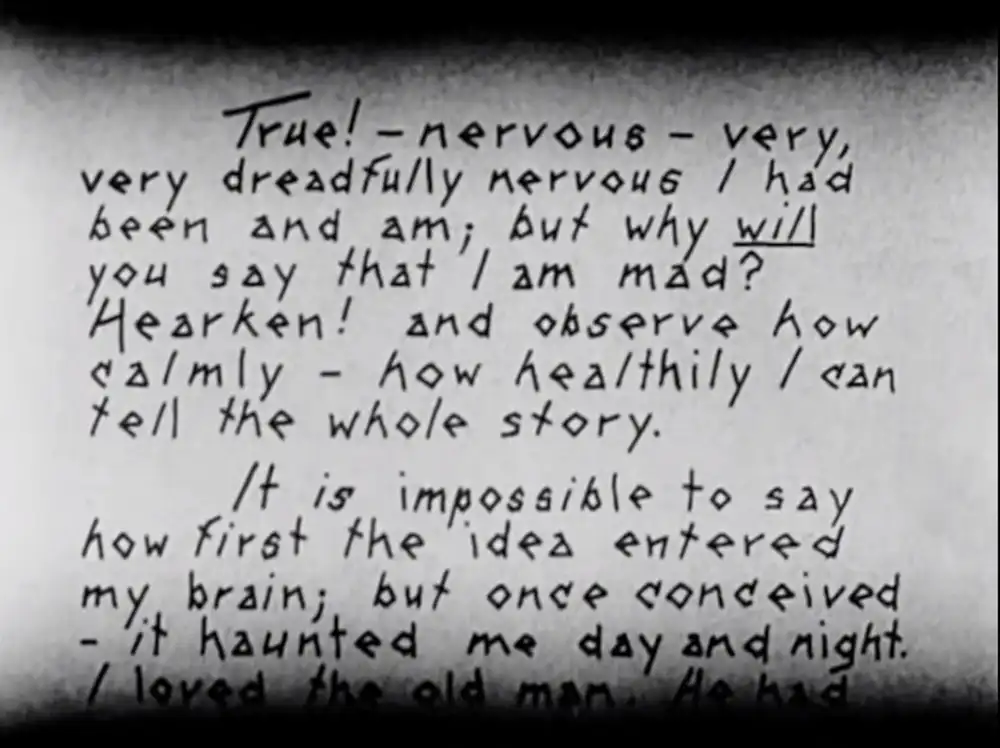 True! – nervous – very,
very dreadfully nervous I had
been and am; but why will
you say that I am mad?
Hearken! and observe how
calmly – how healthily I can
tell the whole story.
It is impossible to say
how first the idea entered
my brain; but once conceived
– it haunted me day and night.
I loved the old man. He had